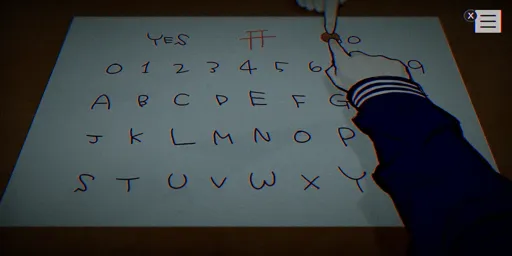 YES
0 1 2 3 4 5 6 9
A B C D E F G
J K L M N O P
S T U V W X Y
X